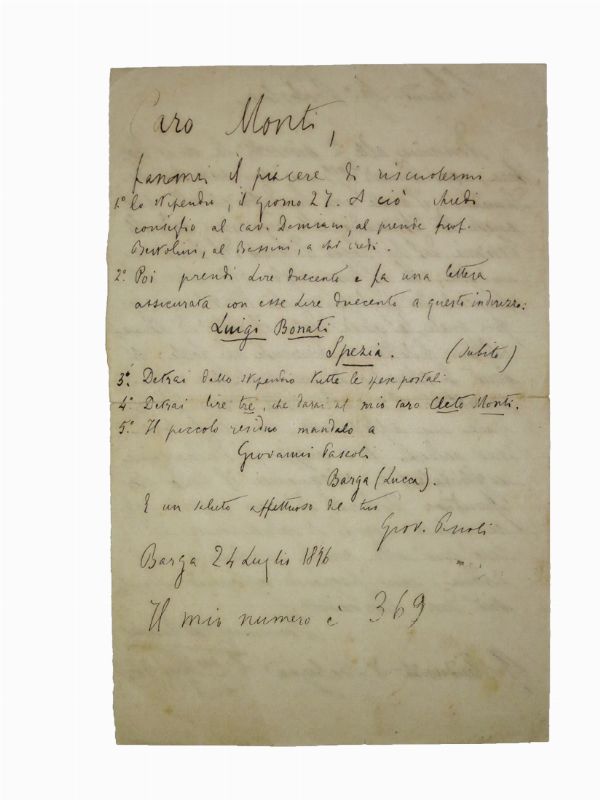 Caro Monti,
fammi il piacere di riscuotermi
1° lo stipendio, il giorno 27. A ciò chiedi
consiglio al cav. Damiani, al preside prof.
Bertolini, al Bessini, a chi credi.
2° Poi prendi Lire duecento e fa una lettera
assicurata con esse Lire duecento a questo indirizzo:
Luigi Bonati
Spezia. (subito)
3° Detrai dallo stipendio tutte le spese postali
4° Detrai lire tre, che darai al mio caro Cleto Monti.
5° Il piccolo residuo mandalo a
Giovanni Pascoli
Barga (Lucca).
E un saluto affettuoso dal tuo
Giov. Pascoli
Barga 24 Luglio 1896
Il mio numero è 369